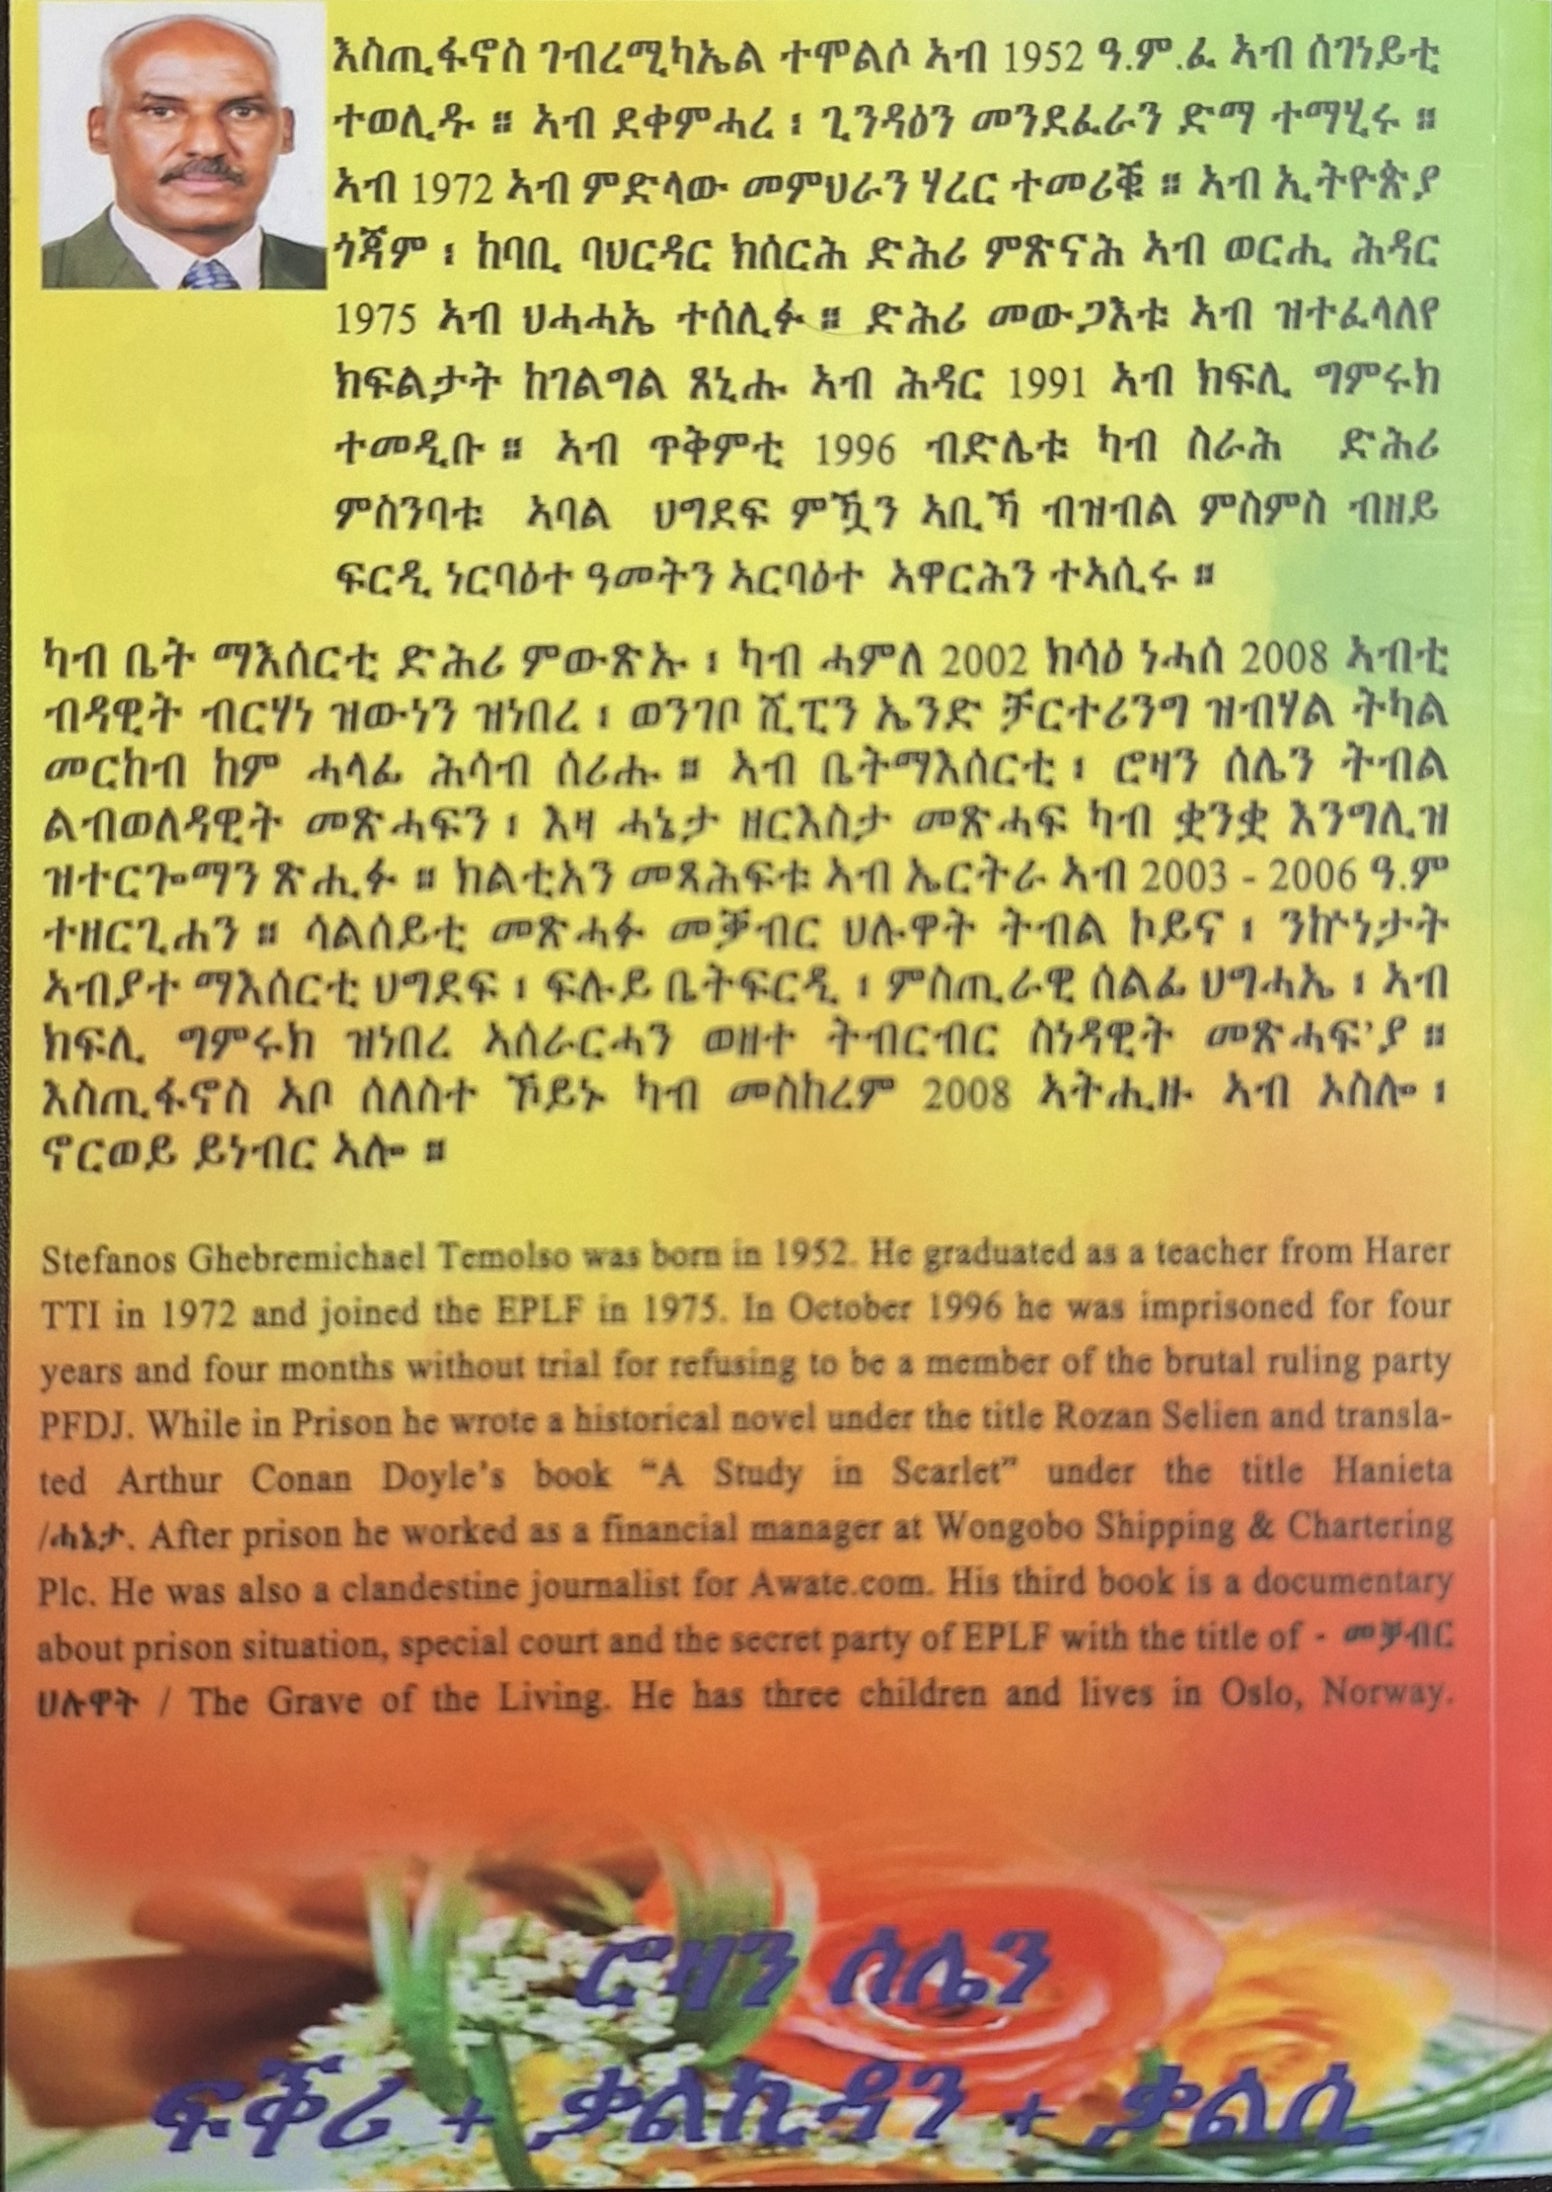 እስጢፋኖስ ገብረሚካኤል ተሞልሶ ኣብ 1952 ዓ.ም.ፈ ኣብ ሰገነይቲ
ተወሊዱ ። ኣብ ደቀምሓረ ፣ ጊንዳዕን መንደፈራን ድማ ተማሂሩ ።
ኣብ 1972 ኣብ ምድላው መምህራን ሃረር ተመሪቑ ። ኣብ ኢትዮጵያ
ጎጃም ፣ ከባቢ ባህርዳር ክሰርሕ ድሕሪ ምጽናሕ ኣብ ወርሒ ሕዳር
1975 ኣብ ህሓሓኤ ተሰሊፉ ። ድሕሪ መውጋእቱ ኣብ ዝተፈላለየ
ክፍልታት ከገልግል ጸኒሑ ኣብ ሕዳር 1991 ኣብ ክፍሊ ግምሩክ
ተመዲቡ ። ኣብ ጥቅምቲ 1996 ብድሌቱ ካብ ስራሕ ድሕሪ
ምስንባቱ ኣባል ህግደፍ ምዃን ኣቢኻ ብዝብል ምስምስ ብዘይ
ፍርዲ ነርባዕተ ዓመትን ኣርባዕተ ኣዋርሕን ተኣሲሩ ።
ካብ ቤት ማእሰርቲ ድሕሪ ምውጽኡ ፣ ካብ ሓምለ 2002 ክሳዕ ነሓሰ 2008 ኣብቲ
ብዳዊት ብርሃነ ዝውነን ዝነበረ ፣ ወንገቦ ሺፒን ኤንድ ቻርተሪንግ ዝብሃል ትካል
መርከብ ከም ሓላፊ ሕሳብ ሰሪሑ ። ኣብ ቤትማእሰርቲ ፣ ሮዛን ሰሌን ትብል
ልብወለዳዊት መጽሓፍን ፣ እዛ ሓኔታ ዘርእስታ መጽሓፍ ካብ ቋንቋ እንግሊዝ
ዝተርጐማን ጽሒፉ ። ክልቲአን መጻሕፍቱ ኣብ ኤርትራ ኣብ 2003 - 2006 ዓ.ም
ተዘርጊሐን ። ሳልሰይቲ መጽሓፉ መቓብር ህሉዋት ትብል ኮይና ፣ ንኵነታት
ኣብያተ ማእሰርቲ ህግደፍ ፣ ፍሉይ ቤትፍርዲ ፣ ምስጢራዊ ሰልፊ ህግሓኤ ፣ ኣብ
ክፍሊ ግምሩክ ዝነበረ ኣሰራርሓን ወዘተ ትብርብር ስነዳዊት መጽሓፍ'ያ ።
እስጢፋኖስ ኣቦ ሰለስተ ኾይኑ ካብ መስከረም 2008 ኣትሒዙ ኣብ ኦስሎ ፣
ኖርወይ ይነብር ኣሎ ።
Stefanos Ghebremichael Temolso was born in 1952. He graduated as a teacher from Harer
TTI in 1972 and joined the EPLF in 1975. In October 1996 he was imprisoned for four
years and four months without trial for refusing to be a member of the brutal ruling party
PFDJ. While in Prison he wrote a historical novel under the title Rozan Selien and transla-
ted Arthur Conan Doyle's book "A Study in Scarlet" under the title Hanieta
/ሓኔታ. After prison he worked as a financial manager at Wongobo Shipping & Chartering
Plc. He was also a clandestine journalist for Awate.com. His third book is a documentary
about prison situation, special court and the secret party of EPLF with the title of - መቓብር
ህሉዋት / The Grave of the Living. He has three children and lives in Oslo, Norway.
ሮዛን ሰሌን
ፍቕሪ + ቃልኪዳን + ቃልሲ